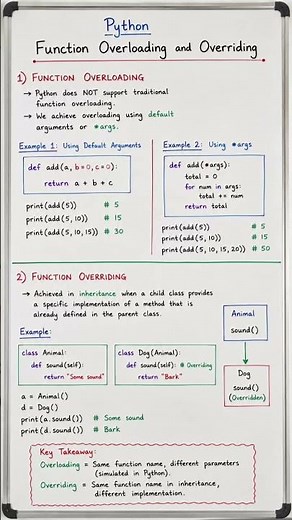 Python
Function Overloading and Overriding
1) FUNCTION OVERLOADING
→ Python does NOT support traditional
function overloading.
→ We achieve overloading using default
arguments or *args.
Example 1: Using Default Arguments
def add(a, b=0, c=0):
return a + b + c
print(add(5)) # 5
print(add(5, 10)) # 15
print(add(5, 10, 15)) # 30
Example 2: Using *args
def add(*args):
total = 0
for num in args:
total += num
return total
print(add(5)) # 5
print(add(5, 10)) # 15
print(add(5, 10, 15, 20)) # 50
2) FUNCTION OVERRIDING
→ Achieved in inheritance when a child class provides
a specific implementation of a method that is
already defined in the parent class.
Example:
class Animal:
def sound(self):
return "Some sound"
class Dog(Animal):
def sound(self): # Overriding
return "Bark"
Animal
sound()
Dog
sound()
(Overridden)
a = Animal()
d = Dog()
print(a.sound()) # Some sound
print(d.sound()) # Bark
Key Takeaway:
Overloading = Same function name, different parameters
(simulated in Python).
Overriding = Same function name in inheritance,
different implementation.